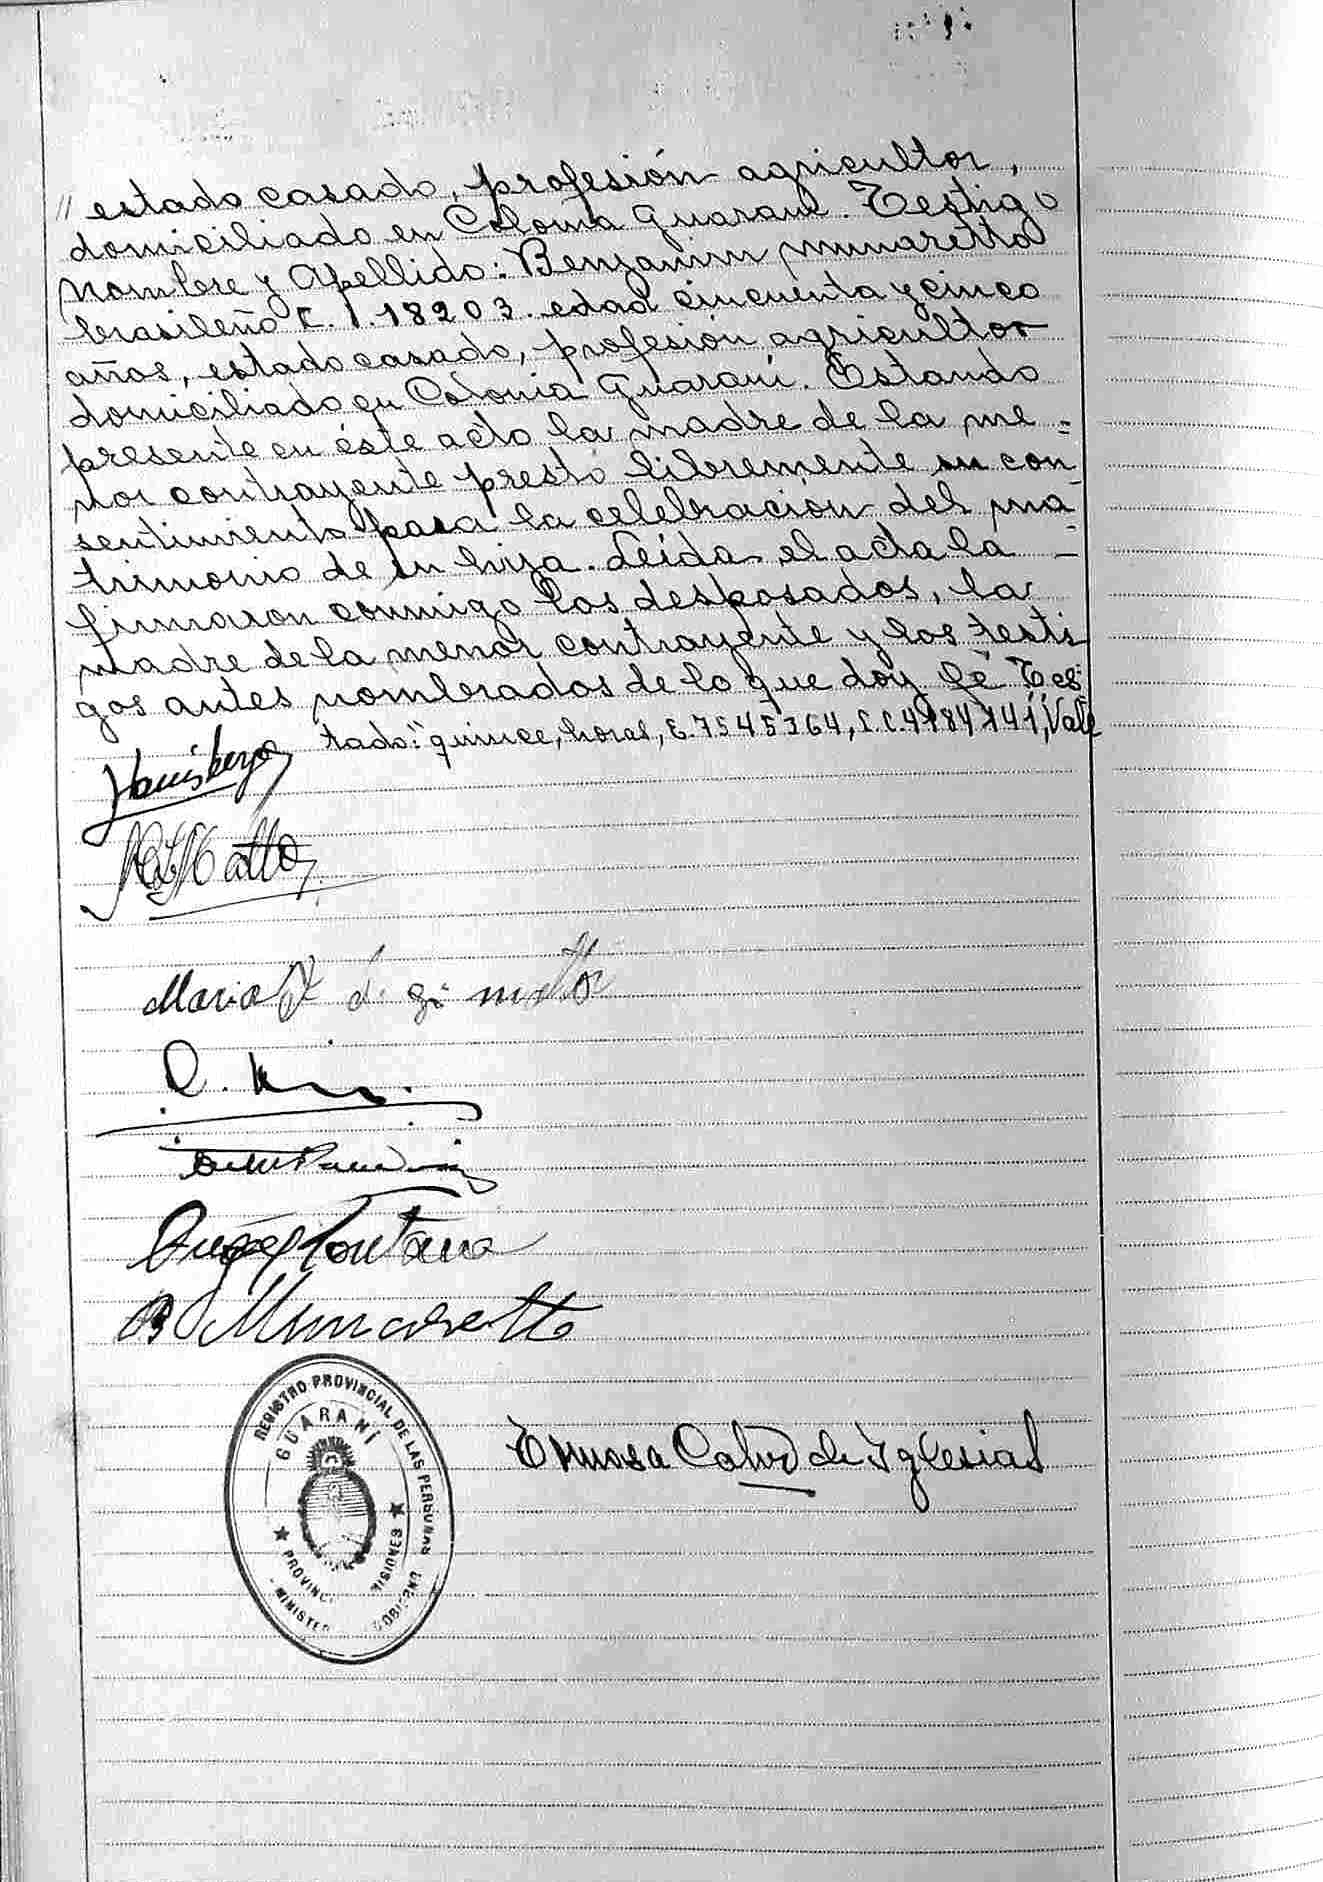 // estado casado, profesión agricultor,
domiciliado en Colonia Guaraní. Testigo
Nombre y Apellido: Benjamin Munaretto
brasileño C. I. 18203. edad cincuenta y cinco
años, estado casado, profesión agricultor
domiciliado en Colonia Guaraní. Estando
presente en éste acto la madre de la me=
nor contrayente prestó libremente su con
sentimiento para la celebración del ma-
trimonio de su hija. Leída el acta la -
firmaron conmigo los desposados, la
madre de la menor contrayente y los testi
gos antes nombrados de lo que doy fé Tes-
tado: "quince, horas, E. 7545364, I.C. 4184141", Vale
Maria
Fontana
B Munaretto
REGISTRO PROVINCIAL DE LAS PERSONAS
GUARANÍ
PROVINC MISIONES
MINISTER GOBIERNO
Ermosa Calvo de Iglesias